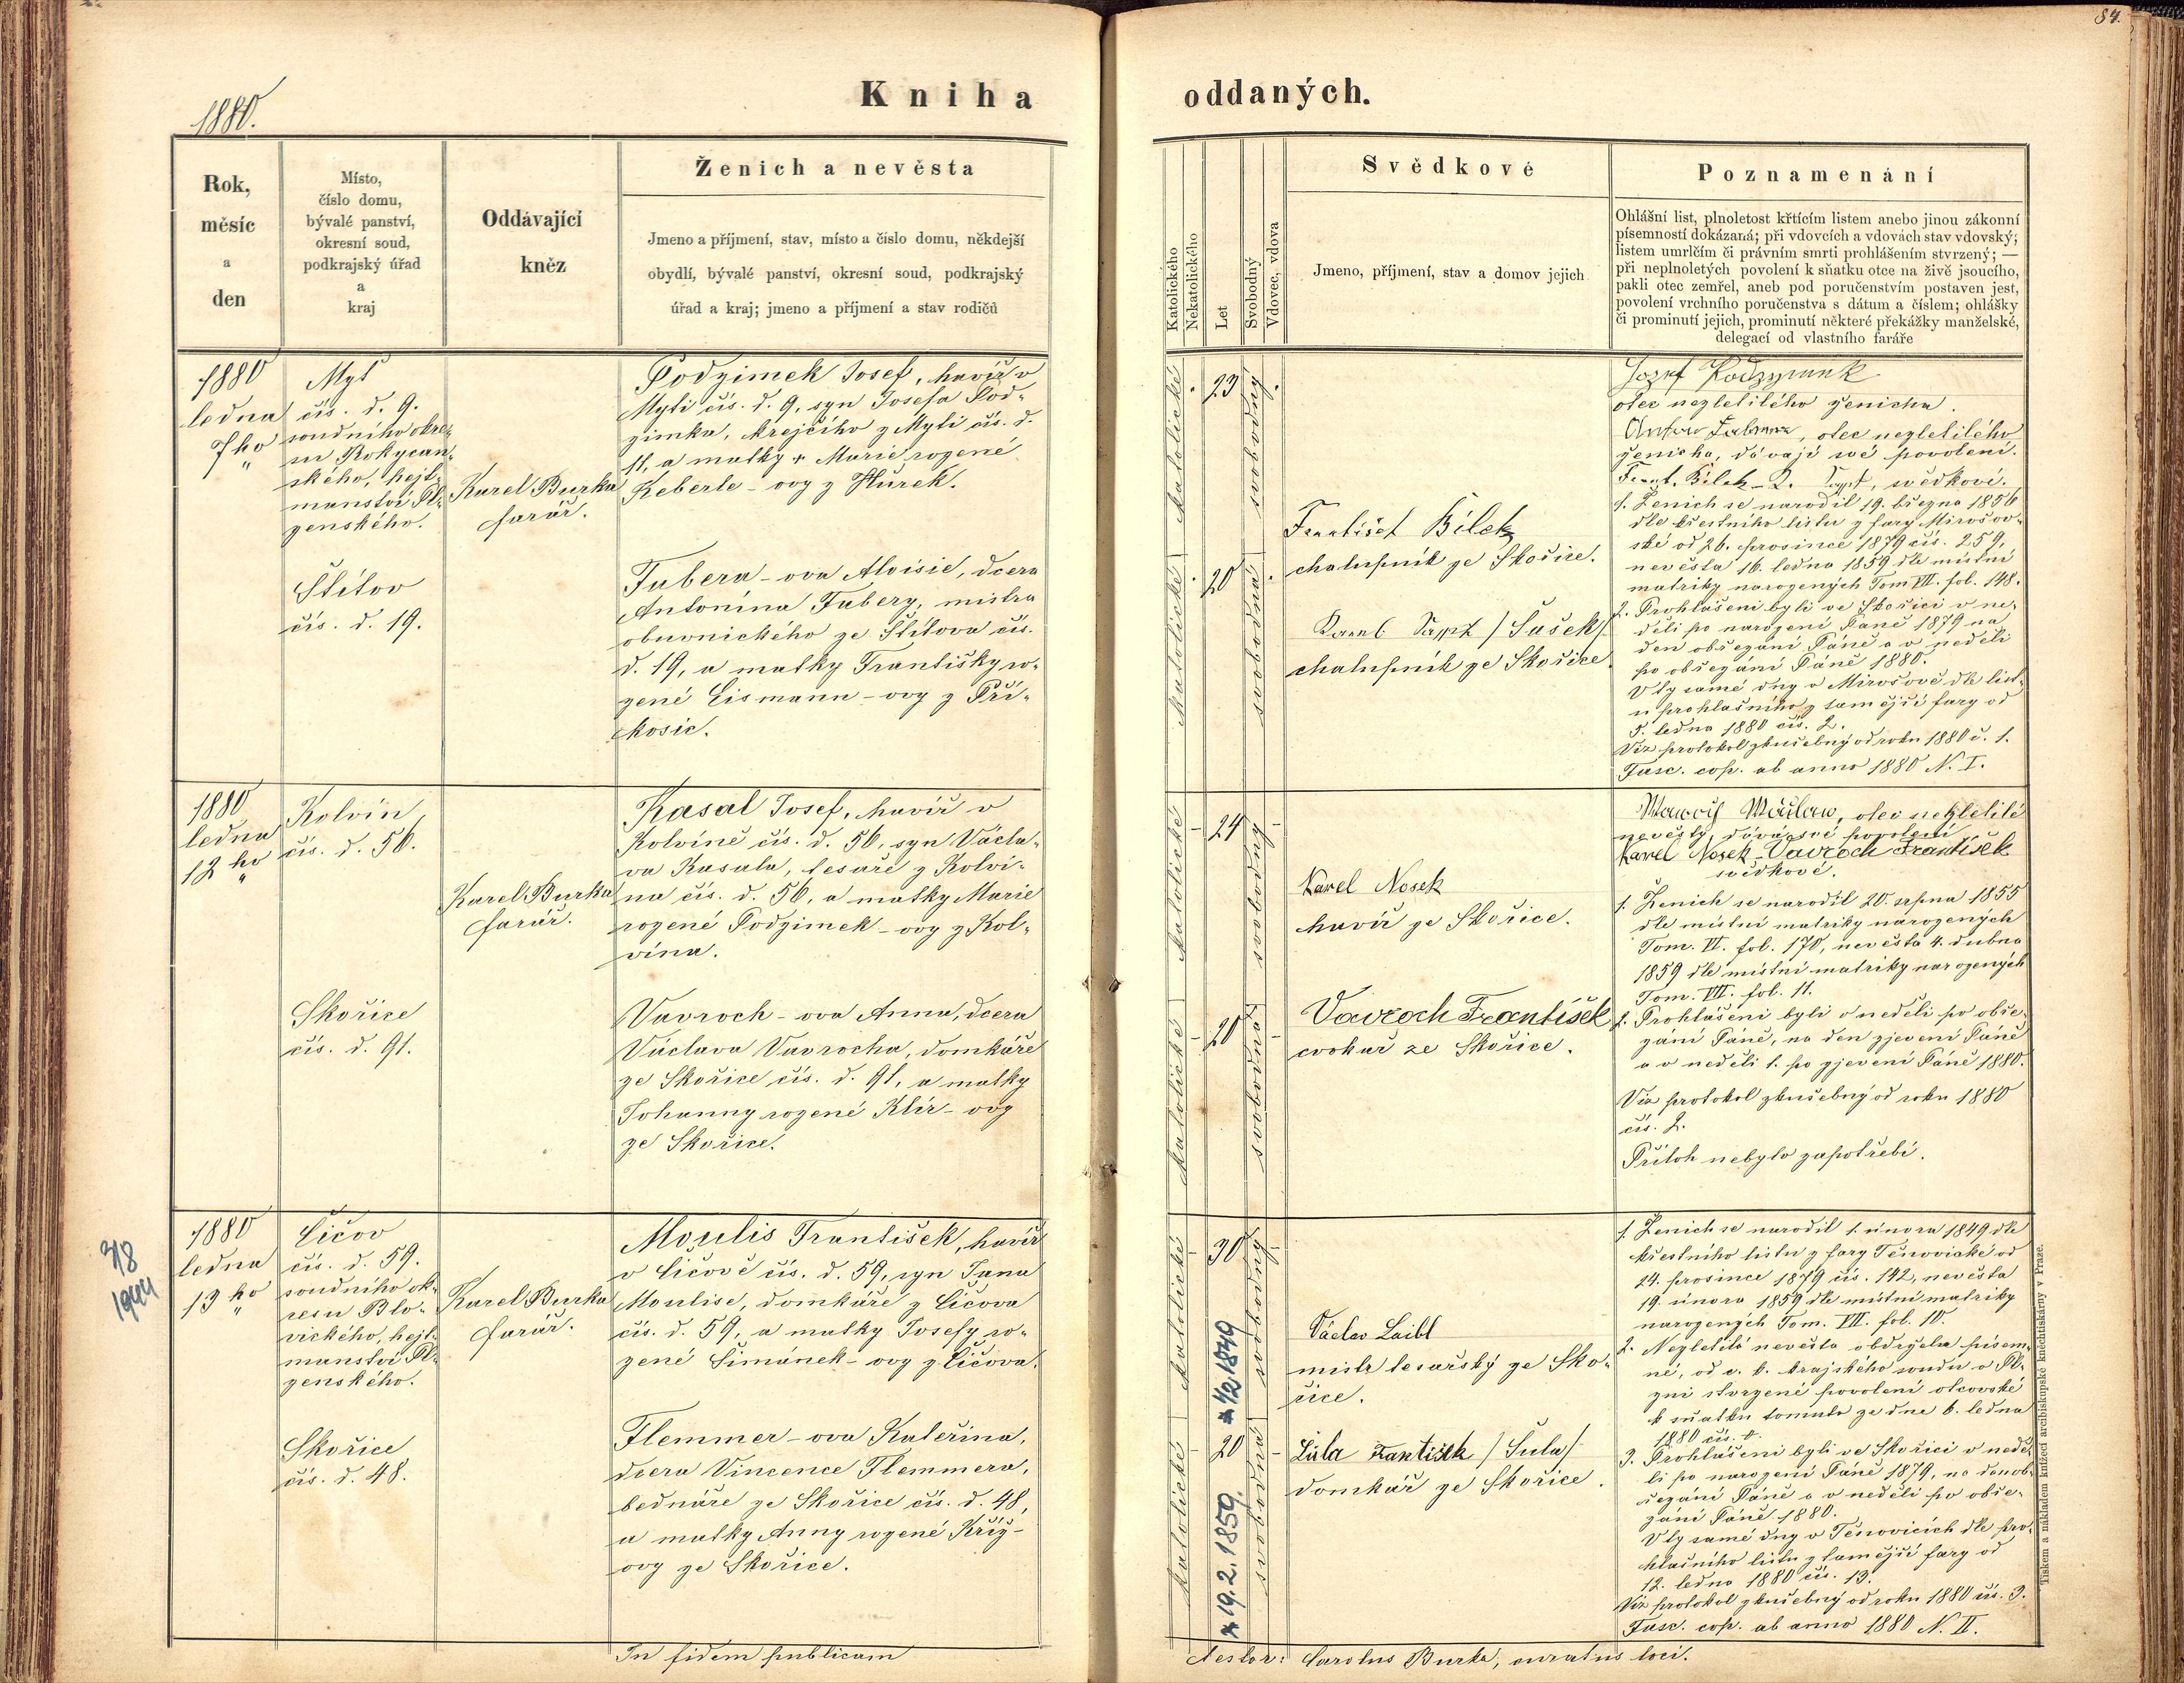 84.
1880.
Kniha
oddaných.
Rok,
měsíc
a
den
Místo,
číslo domu,
bývalé panství,
okresní soud,
podkrajský úřad
a
kraj
Oddávající
kněz
Ženich a nevěsta
Jmeno a příjmení, stav, místo a číslo domu, někdejší
obydlí, bývalé panství, okresní soud, podkrajský
úřad a kraj; jmeno a příjmení a stav rodičů
Katolického
Nekatolického
Let
Svobodný
Vdovec, vdova
Svědkové
Jmeno, příjmení, stav a domov jejich
Poznamenání
Ohlášní list, plnoletost křtícím listem anebo jinou zákonní
písemností dokázaná; při vdovcích a vdovách stav vdovský;
listem umrlčím či právním smrti prohlášením stvrzený; —
při neplnoletých povolení k sňatku otce na živě jsoucího,
pakli otec zemřel, aneb pod poručenstvím postaven jest,
povolení vrchního poručenstva s dátum a číslem; ohlášky
či prominutí jejich, prominutí některé překážky manželské,
delegací od vlastního faráře
1880
ledna
7ho
Myť
čís. d. 9.
soudního okre-
su Rokycan-
ského, hejt-
manství Pl-
zenského.
Štítov
čís. d. 19.
Karel Burka
farář.
Podzimek Josef, havíř v
Myti čís. d. 9, syn Josefa Pod-
zimka, krejčího z Myti čís. d.
11, a matky + Marie rozené
Keberle-ovy z Hůrek.
Fubera-ova Aloisie, dcera
Antonína Fubery, mistra
obuvnického ze Štítova čís.
d. 19, a matky Františky ro-
zené Eismann-ovy z Pří-
kosic.
katolické
23
svobodný
katolické
20
svobodná
František Bílek
chalupník ze Skořice.
/Sušek/
chalupník ze Skořice.
otec nezletilého ženicha.
, otec nezletilého
ženicha, dávají své povolení.
Frant. Bílek, svědkové.
1. Ženich se narodil 19. března 1856
dle křestního listu z fary Mirošov-
ské od 26. prosince 1879 čís. 259,
nevěsta 16. ledna 1859 dle místní
matriky narozených Tom VII. fol. 148.
2. Prohlášeni byli ve Skořici v ne-
děli po narození Páně 1879 na
den obřezání Páně a v neděli
po obřezání Páně 1880.
V ty samé dny v Mirošově dle list-
u prohlašního z tamější fary od
5. ledna 1880 čís. 2.
Viz protokol zkušebný od roku 1880 č. 1.
Fasc. cop. ab anno 1880 N. I.
1880
ledna
12 ho
Kolvín
čís. d. 56.
Skořice
čís. d. 91.
Karel Burka
farář.
Kasal Josef, havíř v
Kolvíně čís. d. 56, syn Václa-
va Kasala, tesaře z Kolví-
na čís. d. 56, a matky Marie
rozené Podzimek-ovy z Kol-
vína.
Vavroch-ova Anna, dcera
Václava Vavrocha, domkáře
ze Skořice čís. d. 91, a matky
Johanny rozené Klír-ovy
ze Skořice.
katolické
24
svobodný
katolické
20
svobodná
Karel Nosek
havíř ze Skořice.
Vavroch František
cvokař ze Skořice.
, otec nezletilé
nevěsty, dává své povolení
Karel Nosek - Vavroch František
svědkové.
1. Ženich se narodil 20. srpna 1855
dle místní matriky narozených
Tom. VI. fol. 170, nevěsta 4. dubna
1859 dle místní matriky narozených
Tom. VII. fol. 11.
2. Prohlášeni byli v neděli po obře-
zání Páně, na den zjevení Páně
a v neděli 1. po zjevení Páně 1880.
Viz protokol zkušebný od roku 1880
čís. 2.
Příloh nebylo zapotřebí.
3/8
1944
1880
ledna
13 ho
Číčov
čís. d. 59.
soudního ok-
resu Blo-
vického, hejt-
manství Pl-
zenského.
Skořice
čís. d. 48.
Karel Burka
farář.
Moulis František, havíř
v Číčově čís. d. 59, syn Jana
Moulise, domkáře z Číčova
čís. d. 59, a matky Josefy ro-
zené Šimánek-ovy z Číčova.
Flemmer-ova Kateřina,
dcera Vincence Flemmera,
bednáře ze Skořice čís. d. 48,
a matky Anny rozené Kříž-
ovy ze Skořice.
katolické
30
svobodný
* 1/2 1849
katolické
20
svobodná
* 19. 2. 1859.
Václav Laibl
mistr tesařský ze Sko-
řice.
Šůla František /Šula/
domkář ze Skořice.
1. Ženich se narodil 1. února 1849 dle
křestního listu z fary Těnovické od
24. prosince 1879 čís. 142, nevěsta
19. února 1859 dle místní matriky
narozených Tom. VII. fol. 10.
2. Nezletilá nevěsta obdržela písem-
né, od c. k. krajského soudu v Pl-
zni stvrzené povolení otcovské
k sňatku tomuto ze dne 6. ledna
1880 čís.
3. Prohlášeni byli ve Skořici v nedě-
li po narození Páně 1879, na den ob-
řezání Páně a v neděli po obře-
zání Páně 1880.
V ty samé dny v Těnovicích dle pro-
hlašního listu z tamější fary od
12. ledna 1880 čís. 13.
Viz protokol zkušebný od roku 1880 čís. 3.
Fasc. cop. ab anno 1880 N. II.
In fidem publicam
Nestor: Carolus Burka, curatus loci.
Tiskem a nákladem knížecí arcibiskupské knihtiskárny v Praze.